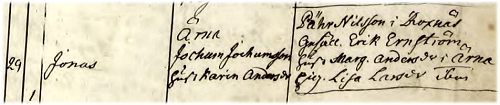 29
Jonas
Ärna
Jochum Jochumsson
Hust. Karin Andersdr
Pähr Nilsson i Broxnäs
Erik Ernström
Hust. Marg. Andersdr i Ärna
Pig. Lisa Larsdr ibm